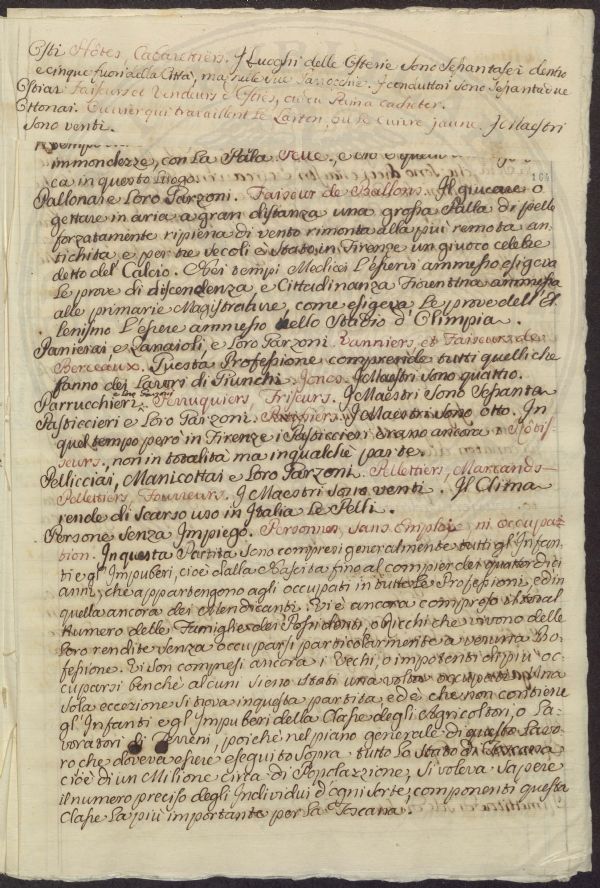 Osti Hôtes, Cabarettiers. I Luoghi delle Osterie sono Sessantasei dentro
e cinque fuori della Città, ma nelle sue Parrocchie. I conduttori sono Sessantadue
Ostiai Faiseurs et Vendeurs d'Osties, ou du Pain a cacheter.
Ottonai. Ouvrier qui travaillent le Laiton, ou le cuivre jaune. I Maestri
sono venti.
immondezze, con la Pala
ca in questo luogo.
164
Pallonai e Loro Garzoni. Faiseur de Ballons. Il giucare o
gettare in aria a gran distanza una grossa Palla di pelle
forzatamente ripiena di vento rimonta alla piú remota an-
tichita e per tre secoli è stato in Firenze un giuoco celebre
detto del Calcio. Nei tempi Medicei L'esservi ammesso esigeva
le prove di discendenza, e Cittadinanza Fiorentina ammessa
alle primarie Magistrature, come esigeva le prove dell'El-
lenismo L'essere ammesso nello Stadio d'Olimpia.
Panierai, e Zanaioli, e Loro Garzoni. Vanniers, et Faiseurs de
Berceaux. Questa Professione comprende tutti quelli che
fanno dei Lavori di Giunchi. Joncs. I Maestri sono quattro.
Parrucchieri e Loro Garzoni Perruquiers, Friseurs. I Maestri sono Sessanta
Pasticcieri e Loro Garzoni. Patissiers. I Maestri sono otto. In
quel tempo però in Firenze i Pasticcieri erano ancora Rôtis-
seurs, non in totalità ma in qualche parte.
Pellicciai, Manicottai e Loro Garzoni Pellettiers, Marcands-
Pellettiers, Fourreurs. I Maestri sono venti. Il Clima
rende di scarso uso in Italia le Pelli.
Persone Senza Impiego. Personnes, sans Emploie, ni occupa-
tion. In questa Partita sono compresi generalmente tutti gl'Infan-
ti e gl'Impuberi, cioè dalla Nascita fino al compier dei quattordici
anni, che appartengono agli occupati in tutte le Professioni, ed in
quella ancora dei Mendicanti. Vi è ancora compreso il total
numero delle Famiglie dei Possidenti, o Ricchi che vivono delle
loro rendite senza occuparsi particolarmente a veruna Pro-
fessione. Vi son compresi ancora i Vechi, o impotenti di più oc-
cuparsi benchè alcuni sieno stati una volta occupati. Una
sola eccezione si trova in questa partita, ed è che non contiene
gl'Infanti e gl'Impuberi della Classe degli Agricoltori, o La-
voratori di Terreni, poichè nel piano generale di questo Lavo-
ro che doveva essere eseguito sopra tutto lo Stato di Toscana
cioè di un Milione circa di Popolazzione, si voleva sapere
il numero preciso degli Individui d'ogni sorte, componenti questa
Classe la più importante per la Toscana.